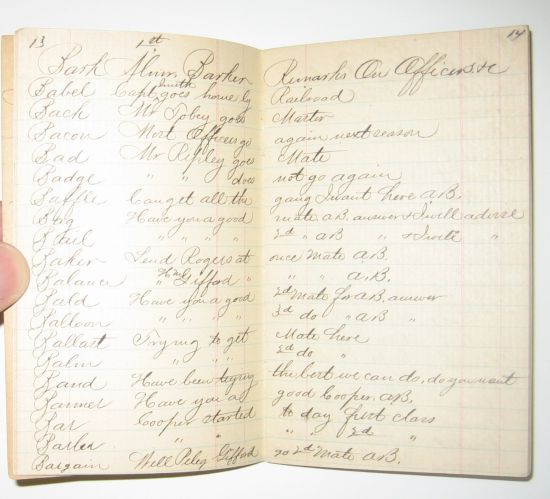 13 1st 14
Bark Abm. Barker Remarks On Officers &c
Babel Capt Smith goes home by Railroad
Back Mr Tobey goes Master
Bacon Most Officers go again next season
Bad Mr Ripley goes Mate
Badge " " does not go again
Baffle Can get all the gang I want here a.B.
Bag Have you a good mate aB. answer & I will advise
Bail " " " " 2d " aB " & I write "
Baker Send Rogers at once Mate aB.
Balance " Gifford " " " a.B.
Bald Have you a good 2d Mate for aB, answer
Balloon " " " " 3d do " aB "
Ballast Trying to get Mate here
Balm " " " 2d do "
Band Have been trying the best we can do, do you want
Banner Have you a good Cooper aB.
Bar Cooper started to day first class
Barber " " " 2d "
Bargain Will Peleg Gifford go 2d Mate aB.